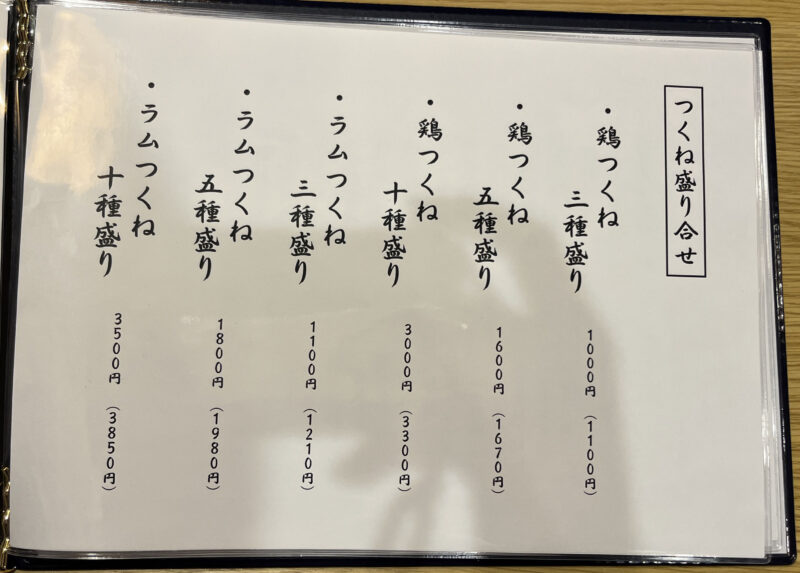 つくね盛り合せ
・鶏つくね
三種盛り
1000円（1100円）
・鶏つくね
五種盛り
1600円（1670円）
・鶏つくね
十種盛り
3000円（3300円）
・ラムつくね
三種盛り
1100円（1210円）
・ラムつくね
五種盛り
1800円（1980円）
・ラムつくね
十種盛り
3500円（3850円）